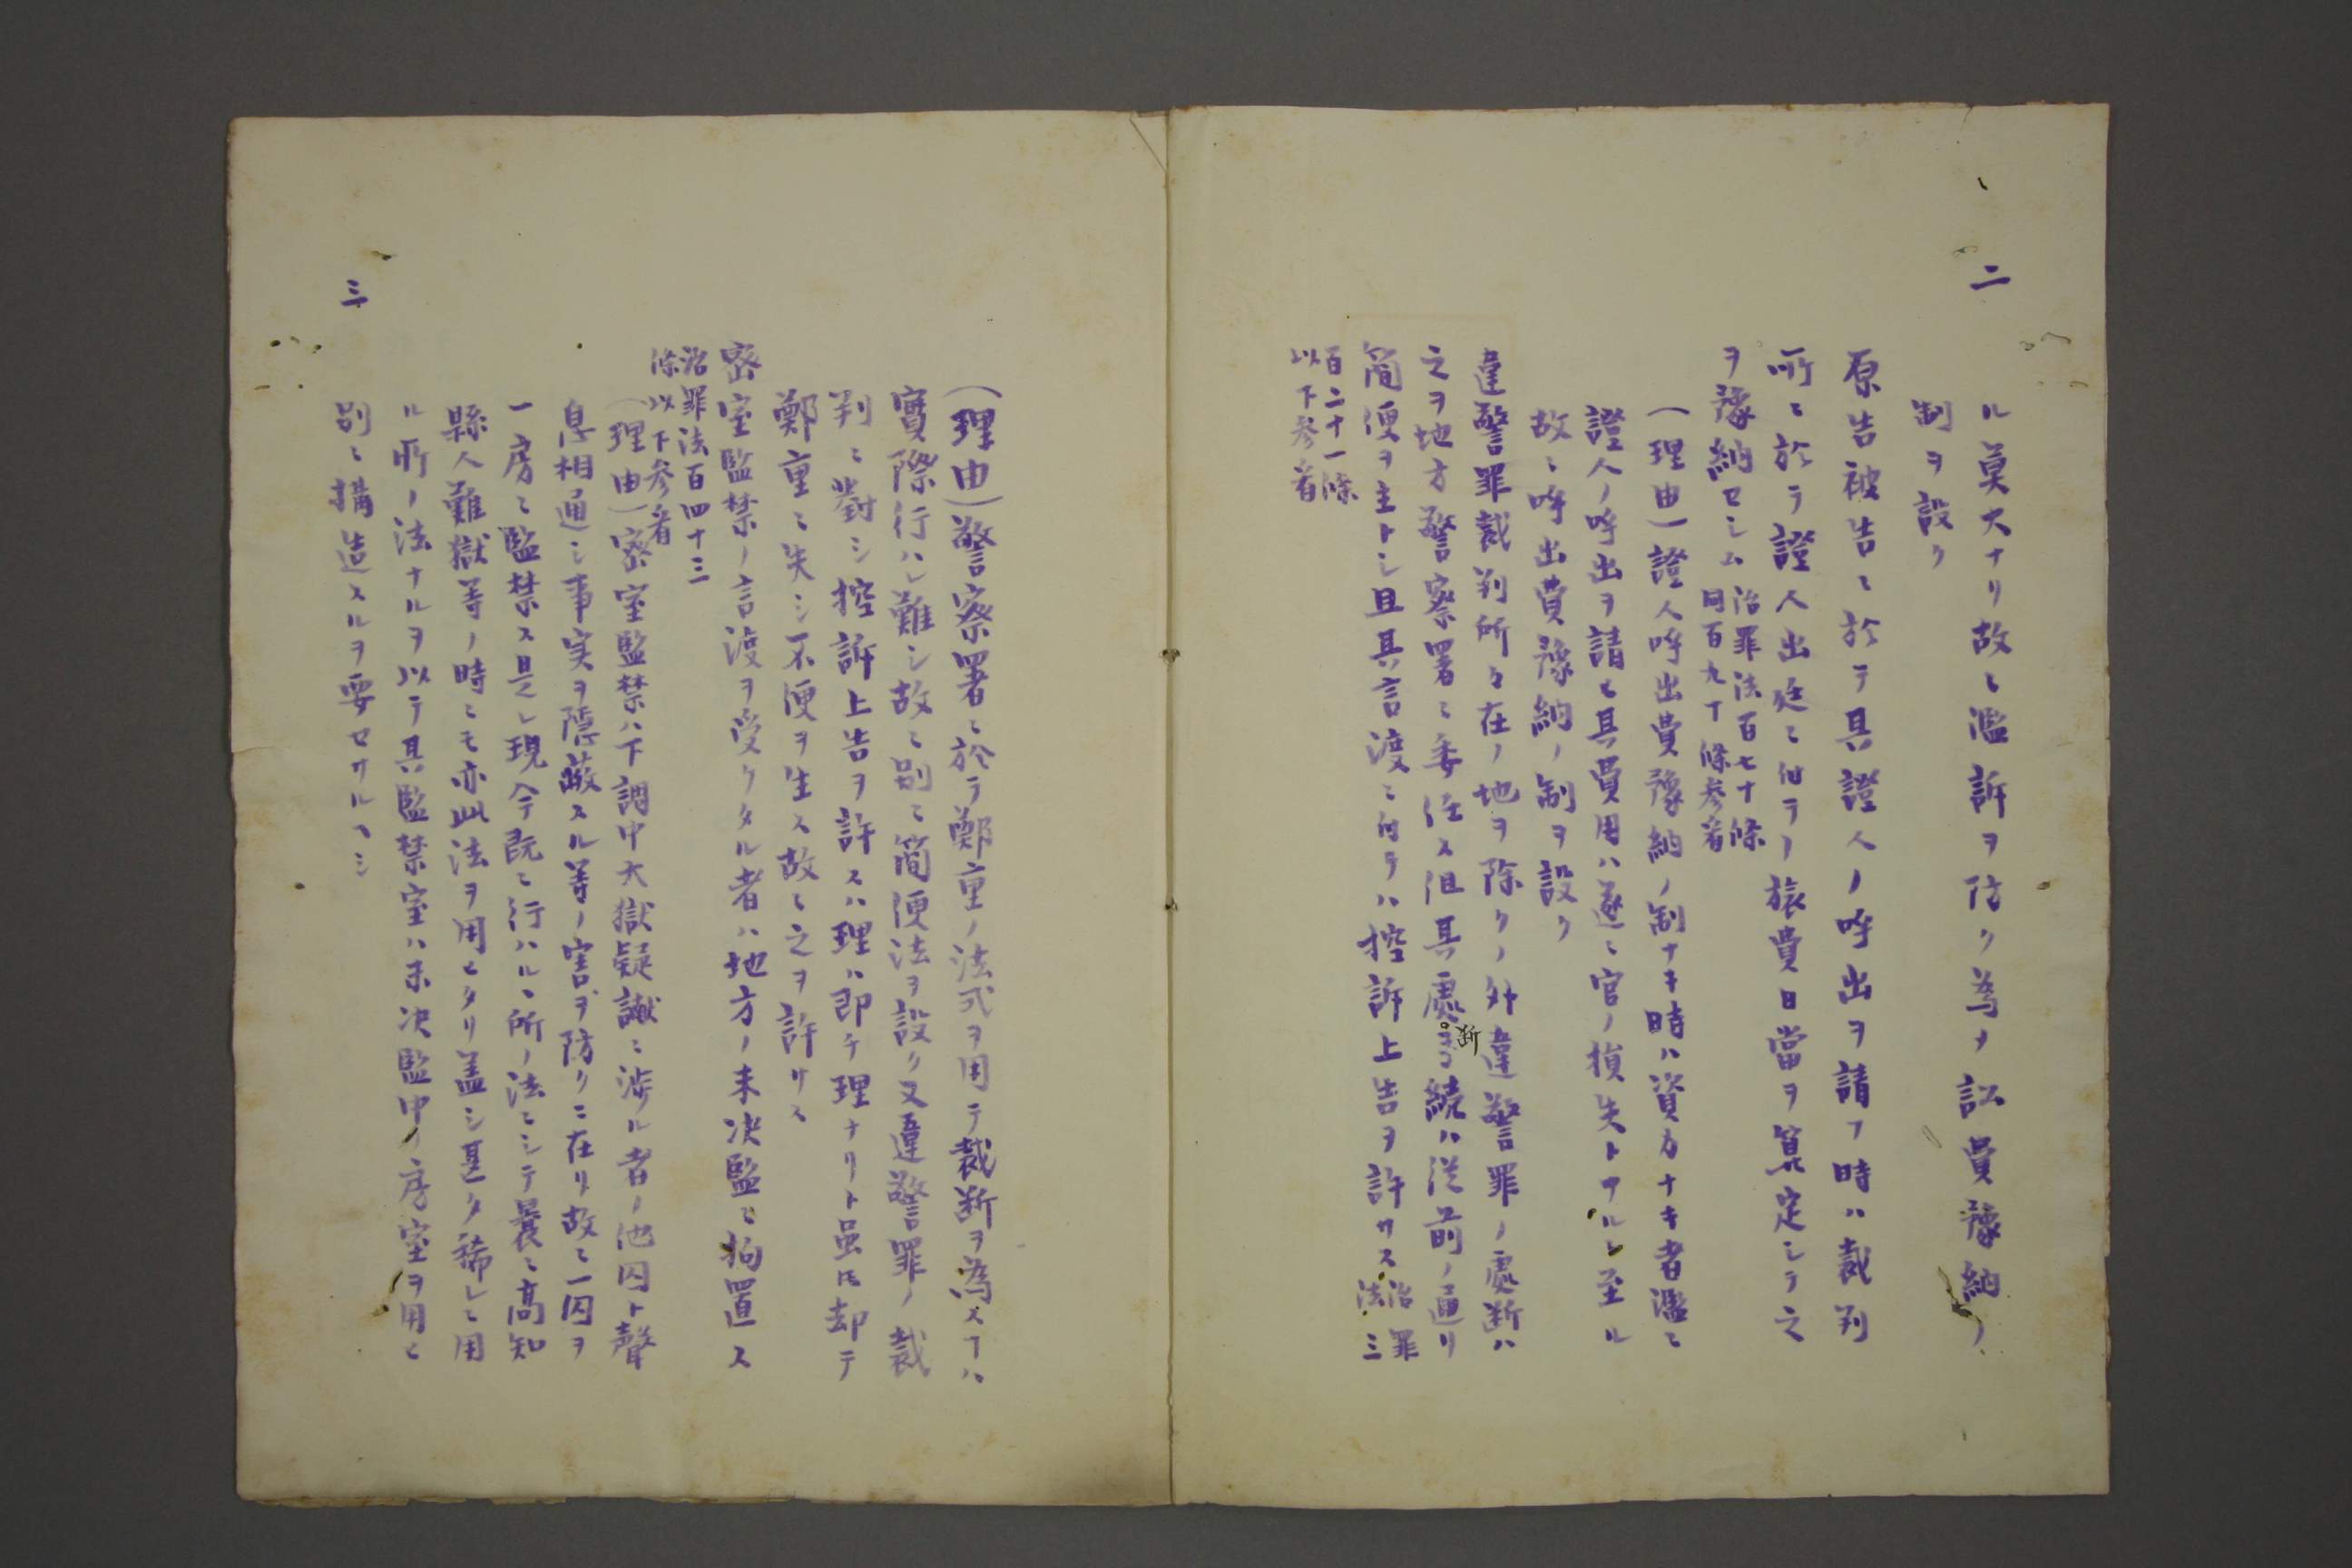 二
ル莫大ナリ故ニ濫訴ヲ防ク為メ訟費豫納ノ
制ヲ設ク
原告被告ニ於テ其證人ノ呼出ヲ請フ時ハ裁判
所ニ於テ證人出廷ニ付テノ旅費日當ヲ算定シテ之
ヲ豫納セシム
治罪法百七十條
同百九十條参看
(理由)證人呼出費豫納ノ制ナキ時ハ資力ナキ者濫ニ
證人ノ呼出ヲ請ヒ其費用ハ遂ニ官ノ損失トナルニ至ル
故ニ呼出費豫納ノ制ヲ設ク
違警罪裁判所々在ノ地ヲ除クノ外違警罪ノ處断ハ
之ヲ地方警察署ニ委任ス但其處断手續ハ従前ノ通リ
簡便ヲ主トシ且其言渡ニ付テハ控訴上告ヲ許サス
治罪
法三
百二十一條
以下参看
(理由)警察署ニ於テ鄭重ノ法式ヲ用テ裁断ヲ為スヿハ
實際行ハレ難シ故ニ別ニ簡便法ヲ設ク又違警罪ノ裁
判ニ對シ控訴上告ヲ許スハ理ハ即チ理ナリト虽𪜈却テ
鄭重ニ失シ不便ヲ生ス故ニ之ヲ許サス
密室監禁ノ言渡ヲ受ケタル者ハ地方ノ未決監ニ拘置ス
治罪法百四十三
條以下参看
(理由)密室監禁ハ下調中大獄疑讞ニ渉ル者ノ他囚ト聲
息相通シ事実ヲ隠蔽スル等ノ害ヲ防クニ在リ故ニ一囚ヲ
一房ニ監禁ス是レ現今既ニ行ハルヽ所ノ法ニシテ曩ニ高知
縣人難獄等ノ時ニモ亦此法ヲ用ヒタリ蓋シ甚タ稀レニ用
ル所ノ法ナルヲ以テ其監禁室ハ未決監中ノ房室ヲ用ヒ
別ニ搆造スルヲ要セサルヘシ
三